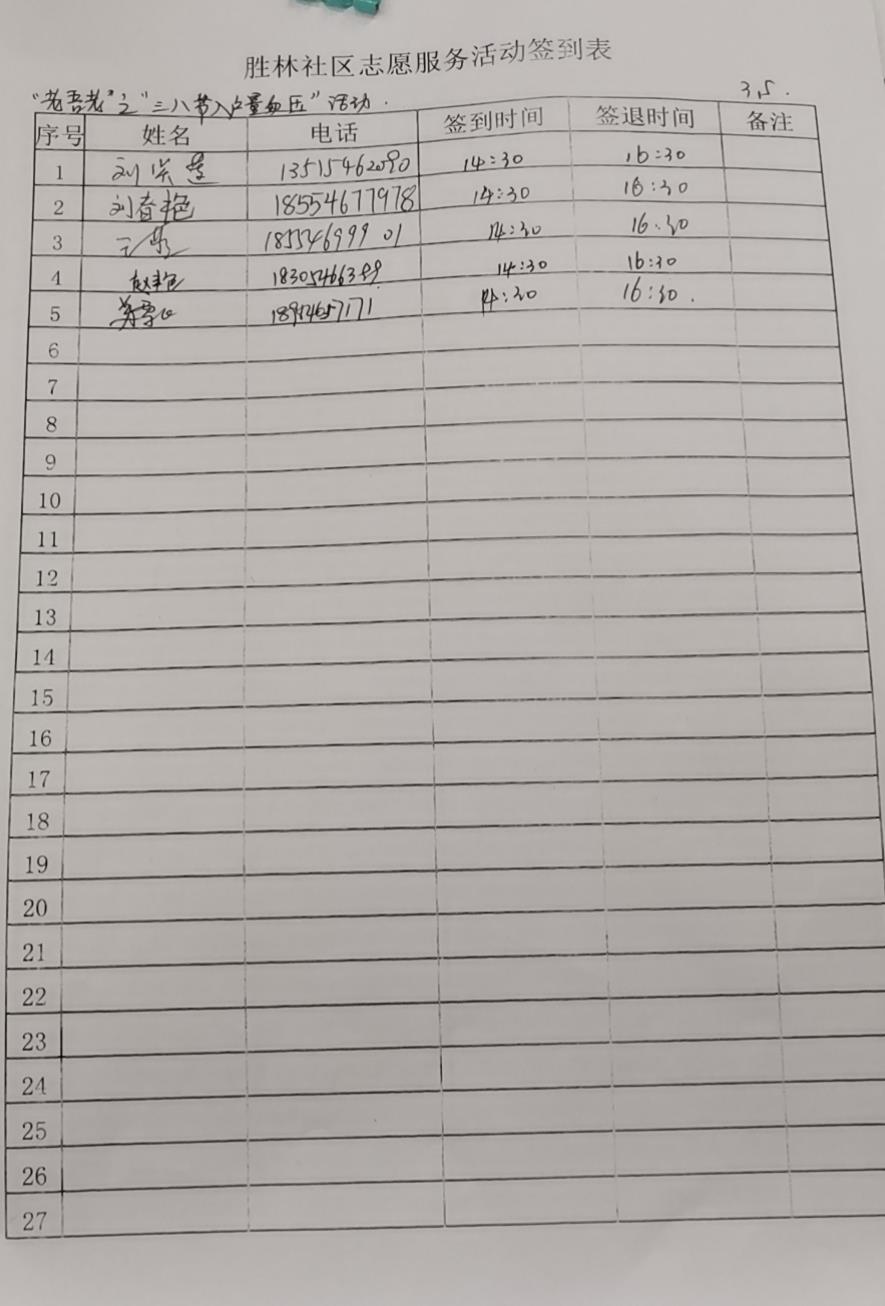 胜林社区志愿服务活动签到表
"老吾老"之"三八节入户量血压"活动.
3.5.
序号 姓名 电话 签到时间 签退时间 备注
1 刘 13515462090 14:30 16:30
2 刘春艳 18554677978 14:30 16:30
3 王 18554699901 14:30 16:30
4 赵艳 14:30 16:30
5 18954657171 14:30 16:30.
6
7
8
9
10
11
12
13
14
15
16
17
18
19
20
21
22
23
24
25
26
27